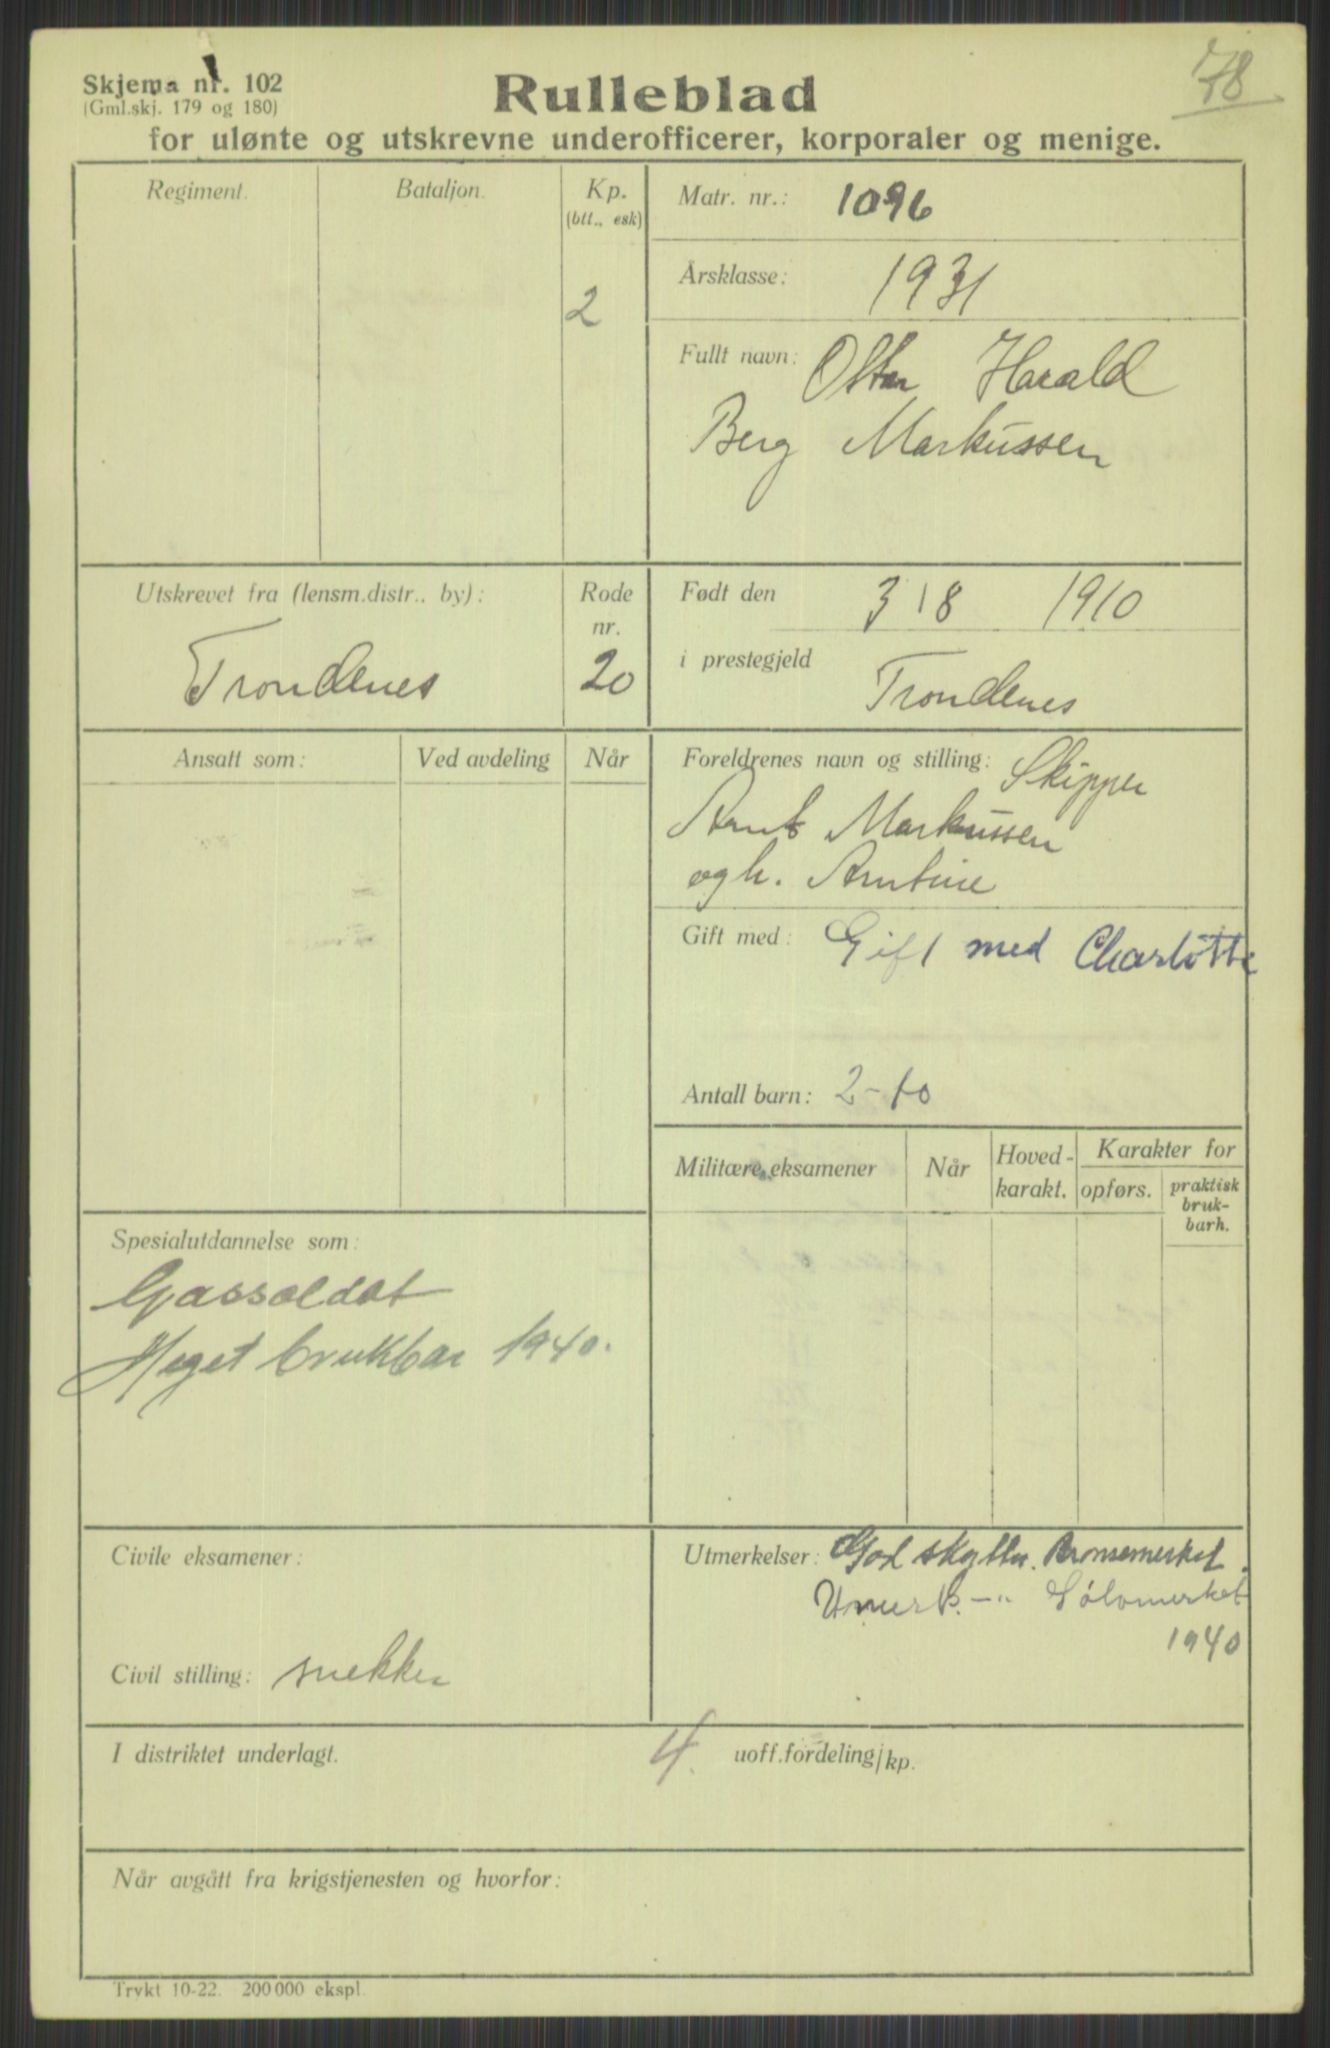 78
Skjema nr. 102
(Gml.skj. 179 og 180)
Rulleblad
for ulønte og utskrevne underofficerer, korporaler og menige.
Regiment. Bataljon. Kp.
(btt., esk)
2
Matr. nr.: 1096
Årsklasse: 1931
Fullt navn: Harald
Berg Markussen
Utskrevet fra (lensm.distr., by): Rode nr.
Trondenes 20
Født den 3/8 1910
i prestegjeld Trondenes
Ansatt som: Ved avdeling Når
Foreldrenes navn og stilling: Skipper
Arnt Markussen
og h. Arntine
Gift med: Gift med Charlotte
Antall barn: 2-40
Militære eksamener Når Hoved-karakt. Karakter for
opførs. praktisk bruk-barh.
Spesialutdannelse som:
Gassoldat
Meget brukbar 1940.
Civile eksamener:
Civil stilling: snekker
Utmerkelser: God skytter. Bronsemerket.
Utmerk. -"- Sølvmerket
1940
I distriktet underlagt. 4. uoff.fordeling/kp.
Når avgått fra krigstjenesten og hvorfor:
Trykt 10-22. 200 000 ekspl.